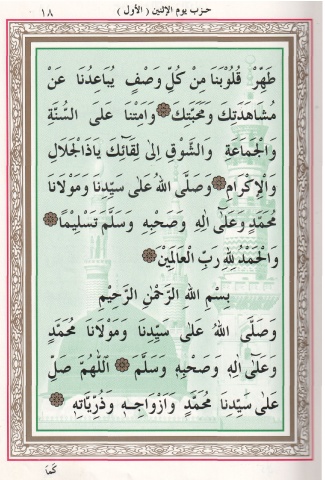 حزب يوم الإثنين (الأول) ١٨
طَهِّرْ قُلُوبَنَا مِنْ كُلِّ وَصْفٍ يُبَاعِدُنَا عَنْ
مُشَاهَدَتِكَ وَمَحَبَّتِكَ وَاَمِتْنَا عَلَى السُّنَّةِ
وَالْجَمَاعَةِ وَالشَّوْقِ اِلَى لِقَائِكَ يَاذَاالْجَلَالِ
وَالْاِكْرَامِ وَصَلَّى اللهُ عَلَى سَيِّدِنَا وَمَوْلَانَا
مُحَمَّدٍ وَعَلَى اٰلِهِ وَصَحْبِهِ وَسَلَّمَ تَسْلِيمًا
وَالْحَمْدُ لِلّٰهِ رَبِّ الْعَالَمِينَ
بِسْمِ اللهِ الرَّحْمٰنِ الرَّحِيْمِ
وَصَلَّى اللهُ عَلَى سَيِّدِنَا وَمَوْلَانَا مُحَمَّدٍ
وَعَلَى اٰلِهِ وَصَحْبِهِ وَسَلَّمَ اَللّٰهُمَّ صَلِّ
عَلَى سَيِّدِنَا مُحَمَّدٍ وَاَزْوَاجِهِ وَذُرِّيَّاتِهِ
كَمَا